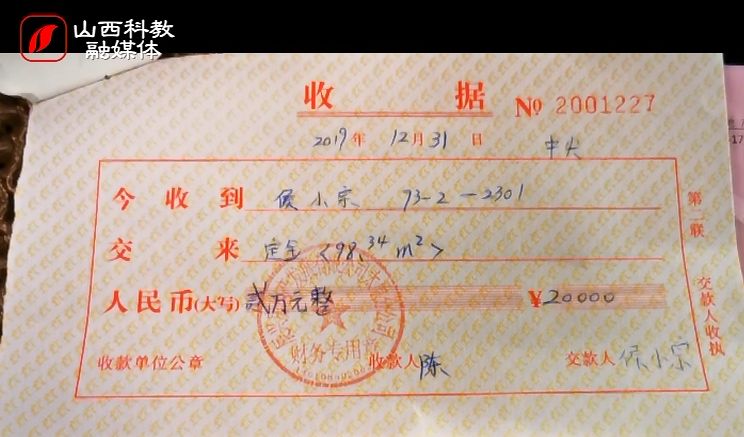 山西科教
融媒体
收据 № 2001227
2019年 12月31日 中央
今收到 侯小宗 93-2-2301
交来 定金<98.34m²>
人民币(大写) 贰万元整 ¥20000
财务专用章
收款单位公章 收款人 陈 交款人 侯小宗
第二联 交款人收执